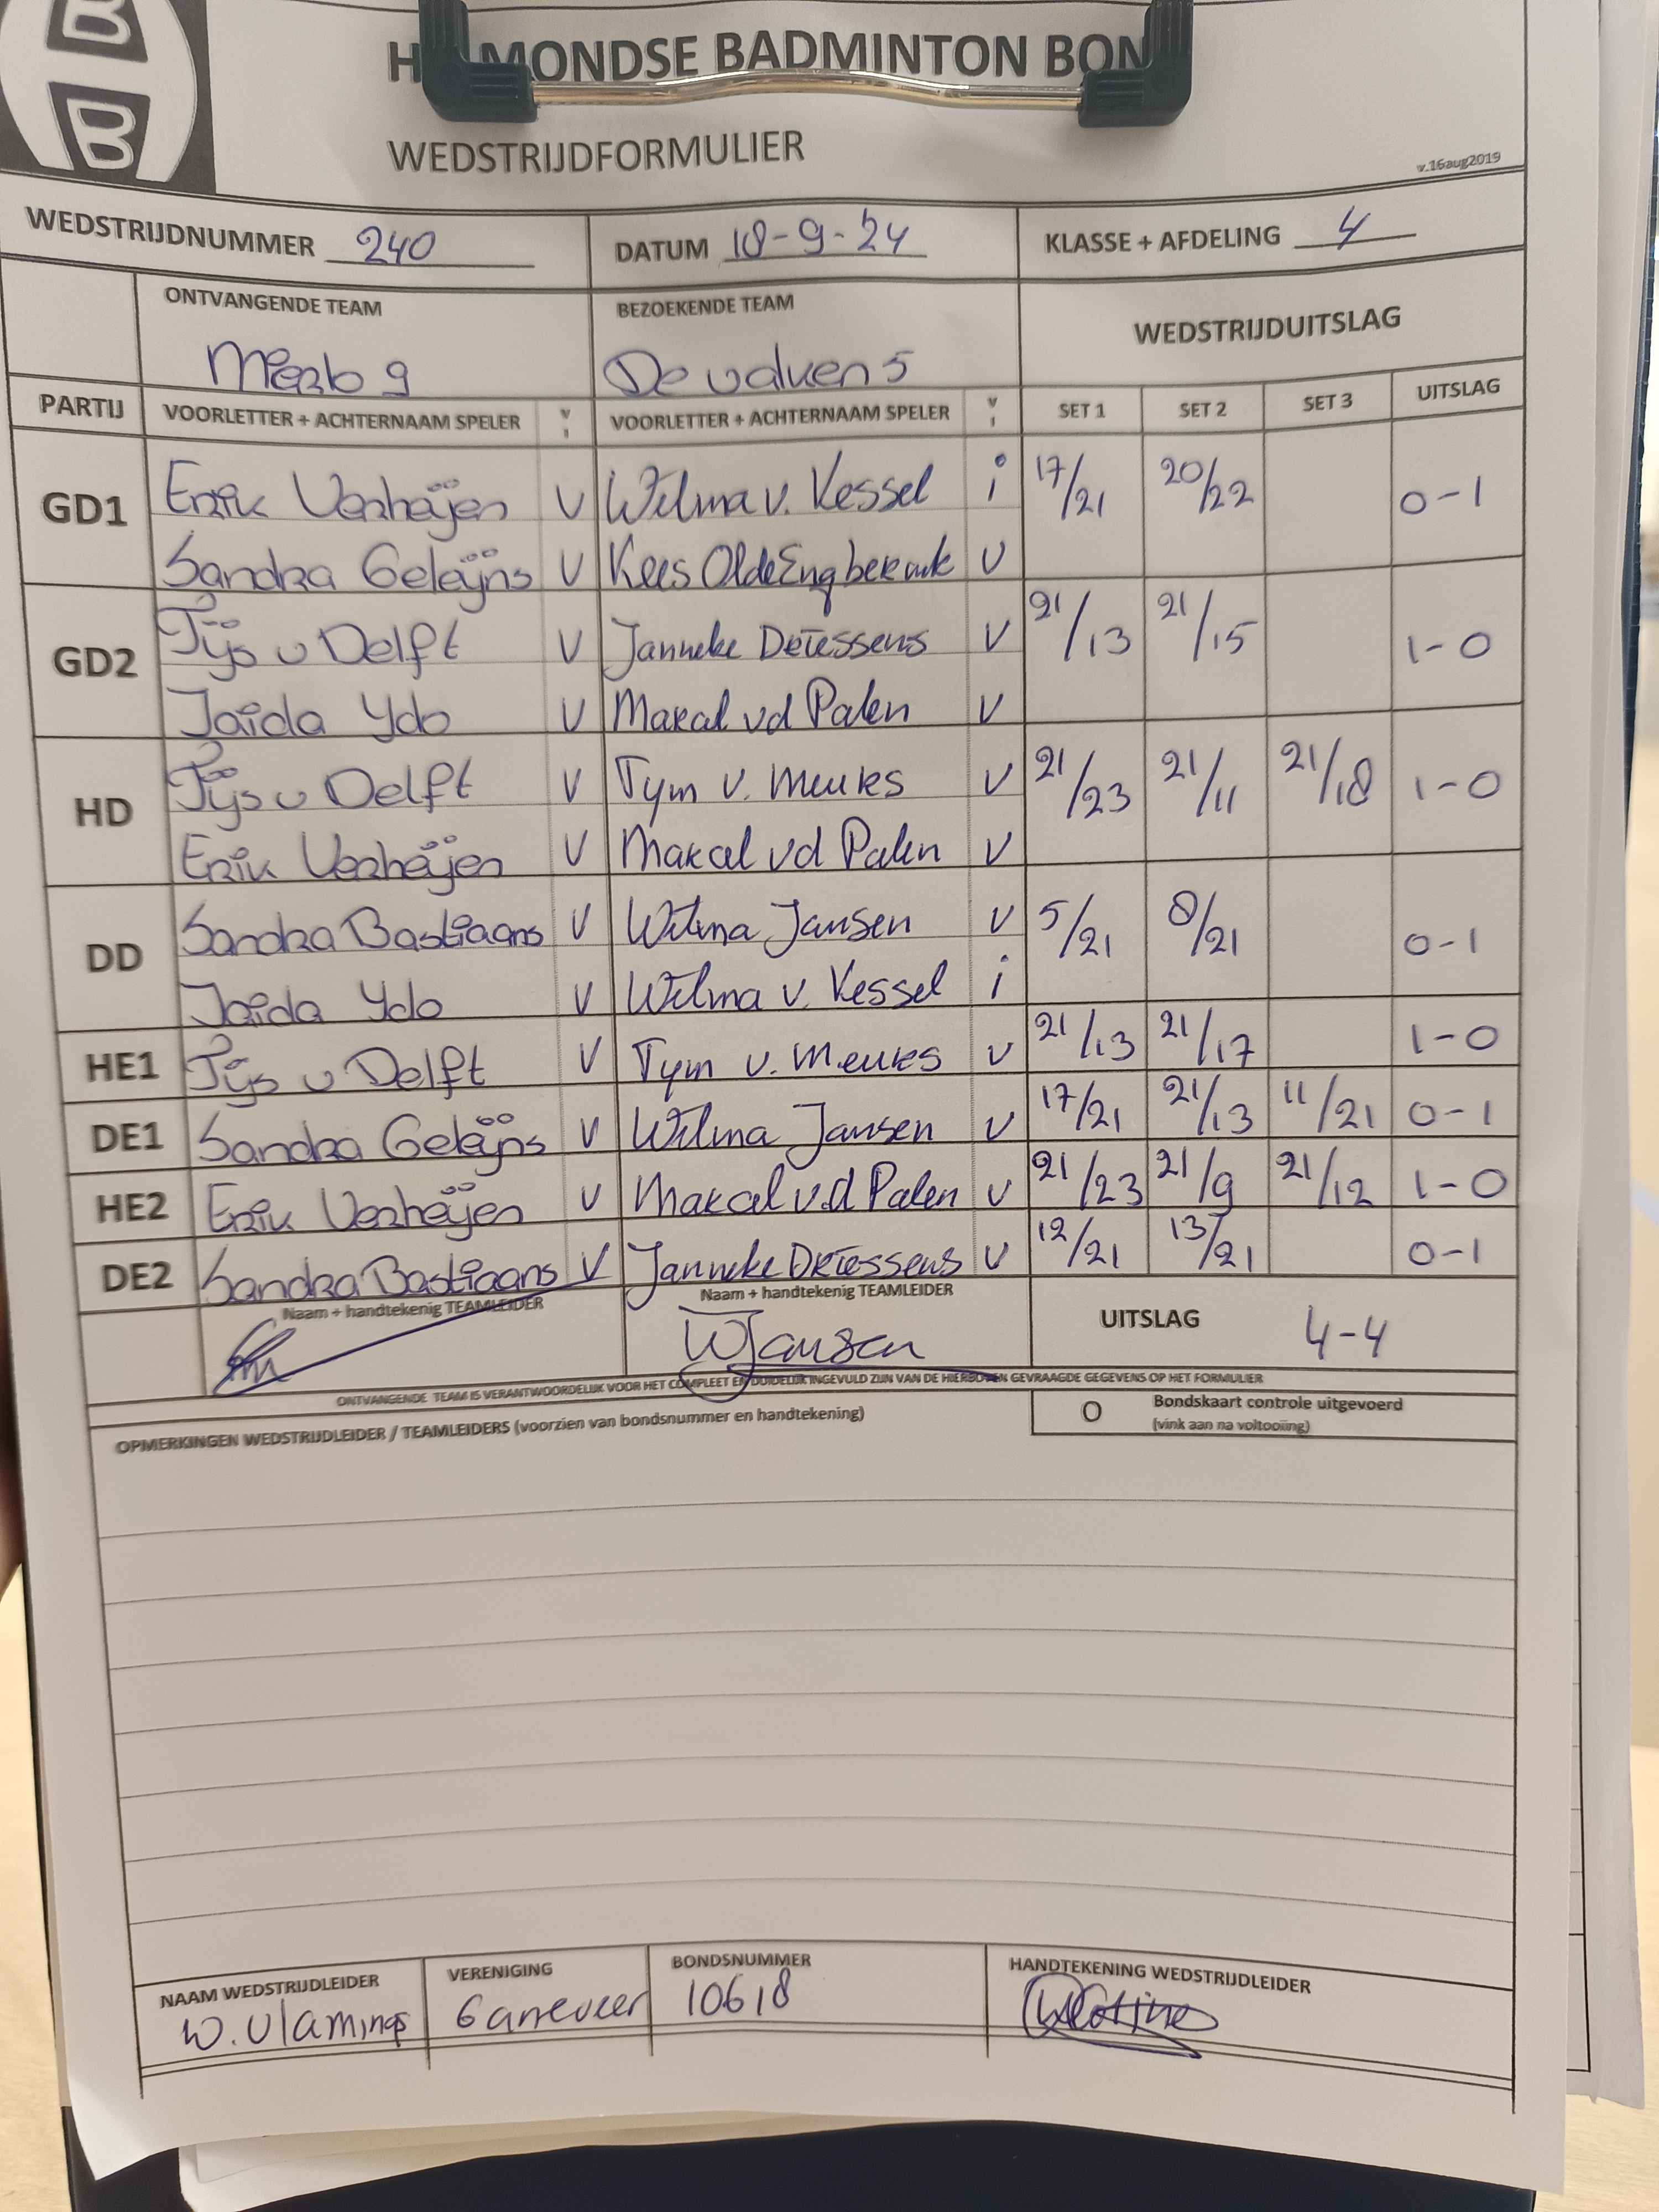 B
B
H MONDSE BADMINTON BON
WEDSTRIJDFORMULIER
v.16aug2019
WEDSTRIJDNUMMER 240 DATUM 18-9-24 KLASSE + AFDELING 4
ONTVANGENDE TEAM BEZOEKENDE TEAM WEDSTRIJDUITSLAG
Mierlo 9 De valuen 5
PARTIJ VOORLETTER + ACHTERNAAM SPELER V I VOORLETTER + ACHTERNAAM SPELER V I SET 1 SET 2 SET 3 UITSLAG
GD1 Erik Verheijen V Wilma v. Kessel i 17/21 20/22 0-1
Sandra Geleijns V Kees Olde Engberink V
GD2 Tijs v Delft V Janneke Driessens V 21/13 21/15 1-0
Jaida Ydo V Marcel vd Palen V
HD Tijs v Delft V Tym v. Meurs V 21/23 21/11 21/18 1-0
Erik Verheijen V Marcel vd Palen V
DD Sandra Bastiaans V Wilma Jansen V 5/21 8/21 0-1
Jaida Ydo V Wilma v. Kessel i
HE1 Tijs v Delft V Tym v. Meurs V 21/13 21/17 1-0
DE1 Sandra Geleijns V Wilma Jansen V 17/21 21/13 11/21 0-1
HE2 Erik Verheijen V Marcel v.d Palen V 21/23 21/9 21/12 1-0
DE2 Sandra Bastiaans V Janneke Driessens V 12/21 13/21 0-1
Naam + handtekenig TEAMLEIDER Naam + handtekenig TEAMLEIDER UITSLAG 4-4
WJansen
ONTVANGENDE TEAM IS VERANTWOORDELIJK VOOR HET COMPLEET EN DUIDELIJK INGEVULD ZIJN VAN DE HIERBOVEN GEVRAAGDE GEGEVENS OP HET FORMULIER
OPMERKINGEN WEDSTRIJDLEIDER / TEAMLEIDERS (voorzien van bondsnummer en handtekening)
O Bondskaart controle uitgevoerd
(vink aan na voltooiing)
NAAM WEDSTRIJDLEIDER VERENIGING BONDSNUMMER HANDTEKENING WEDSTRIJDLEIDER
W. Vlamings Ganeveer 10618